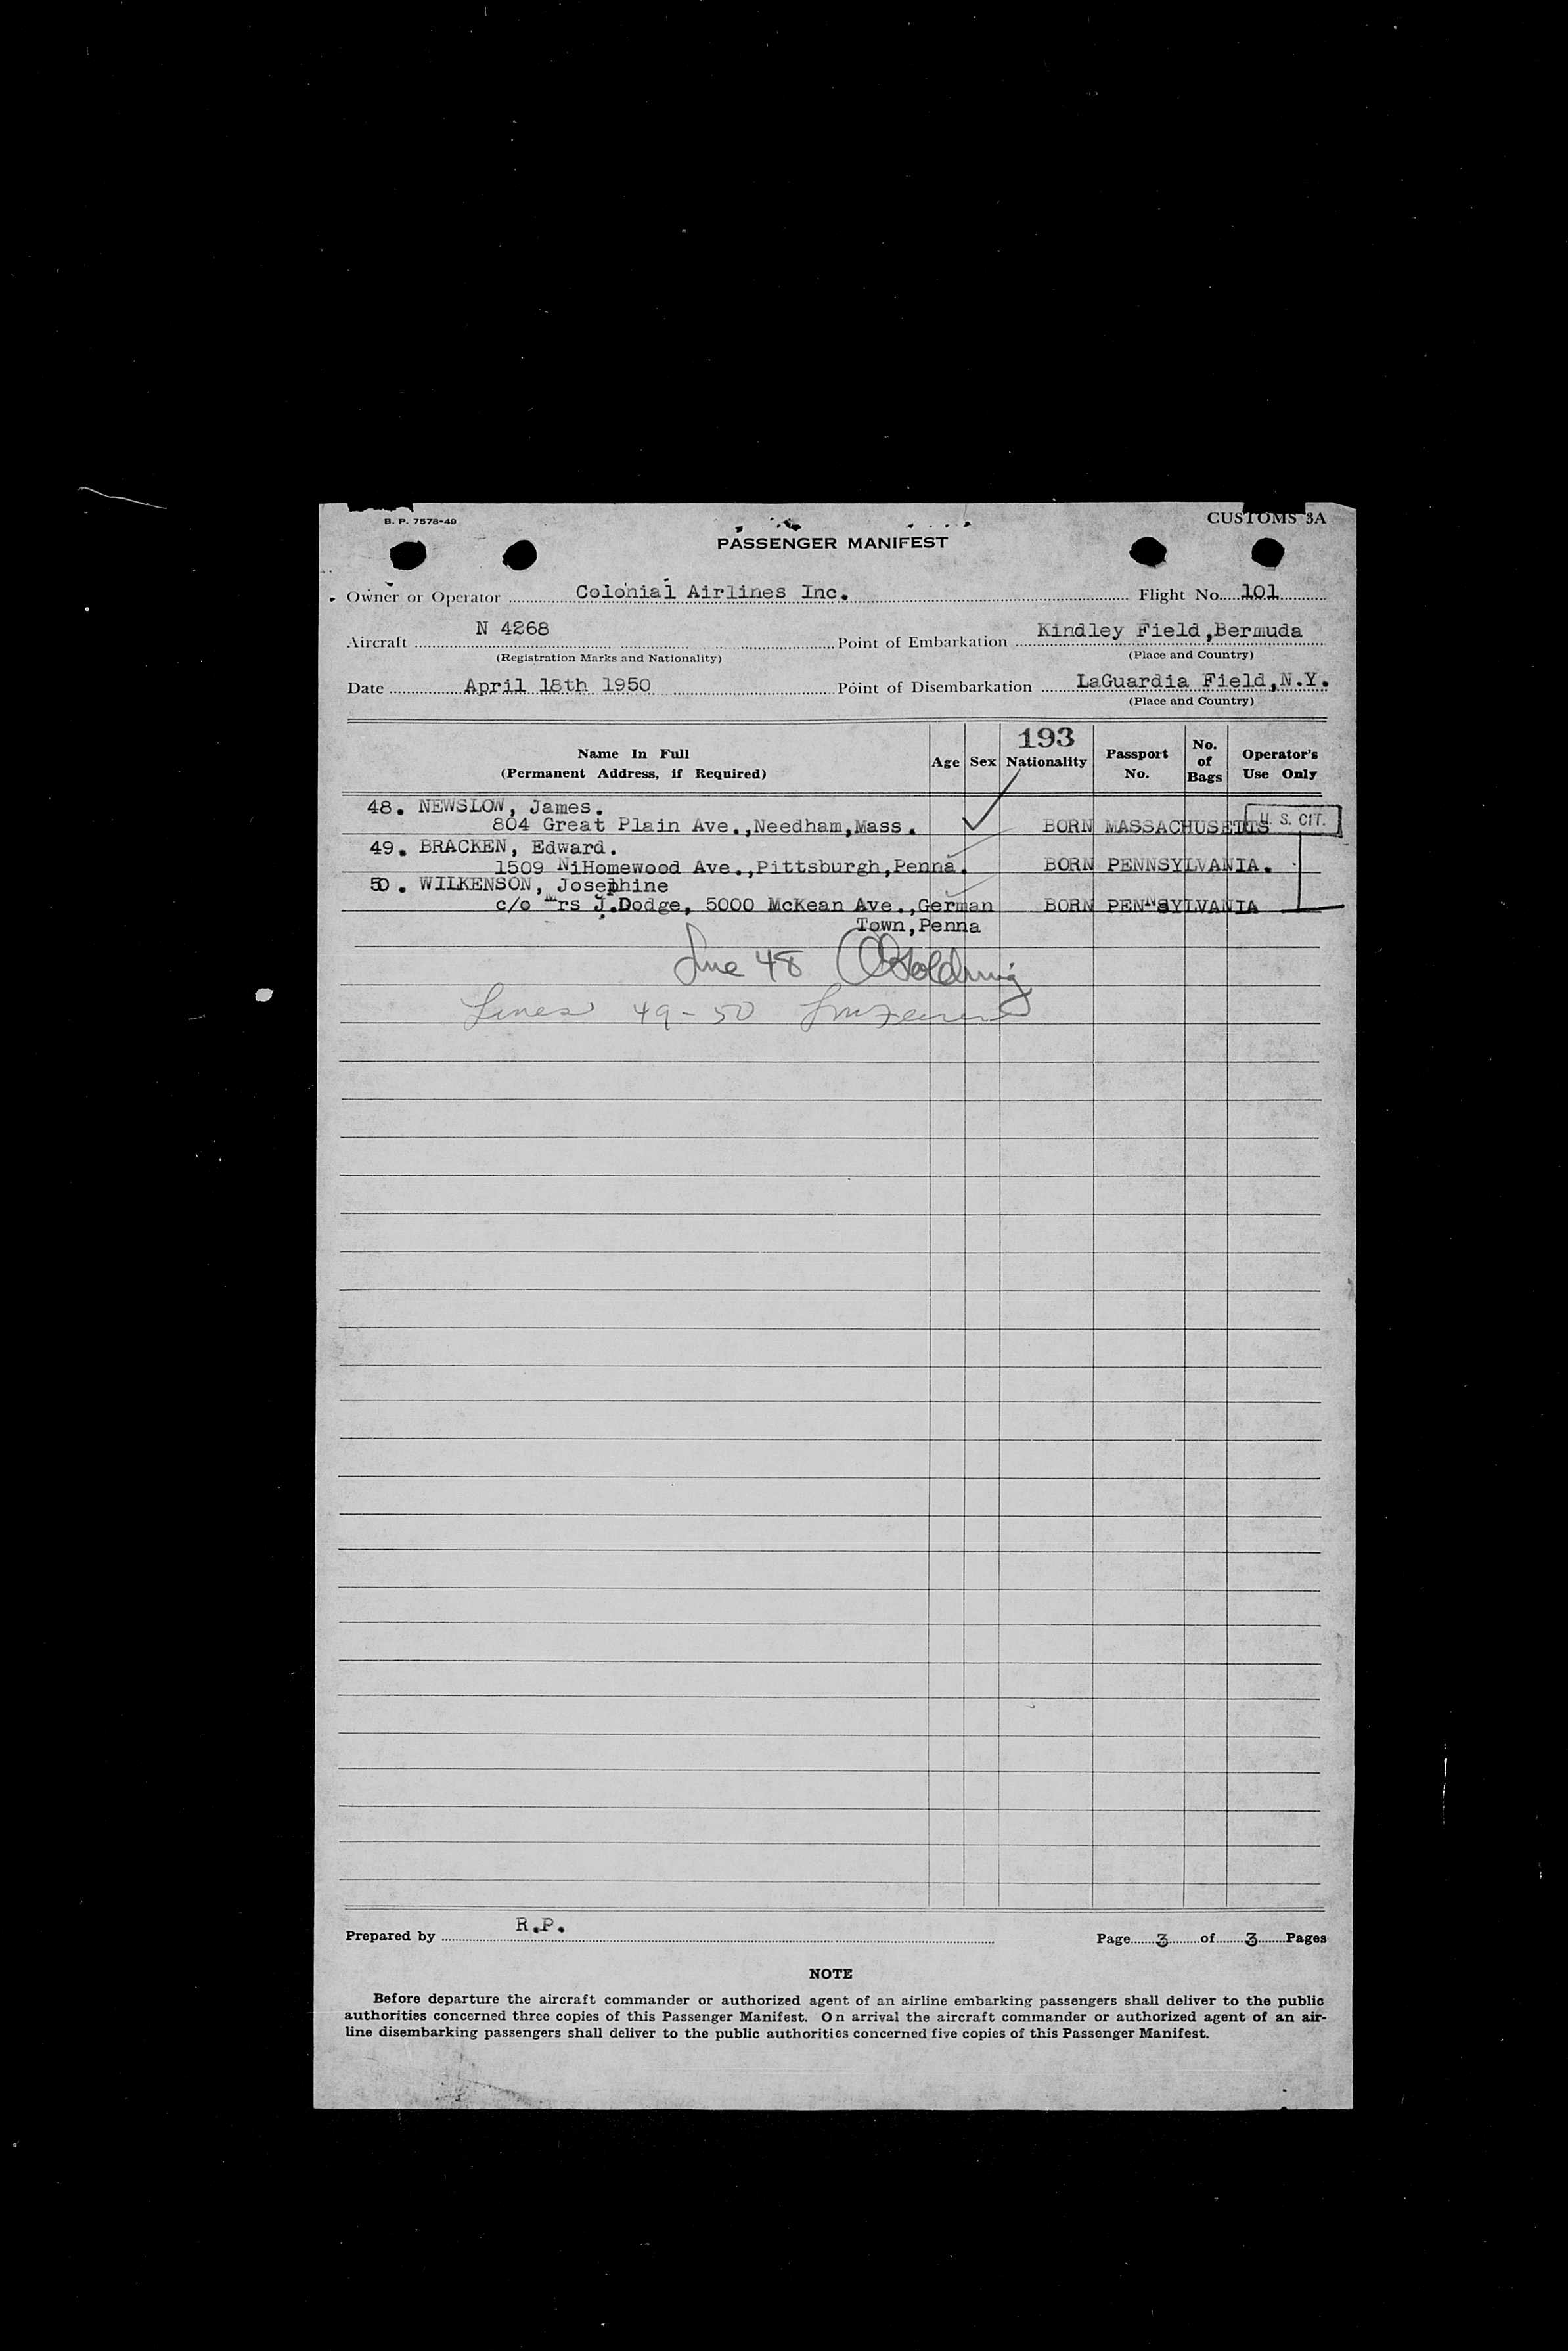 B. P. 7578-49
CUSTOMS 3A
PASSENGER MANIFEST
Owner or Operator Colonial Airlines Inc. Flight No. 101
Aircraft N 4268 Point of Embarkation Kindley Field,Bermuda
(Registration Marks and Nationality) (Place and Country)
Date April 18th 1950 Point of Disembarkation LaGuardia Field,N.Y.
(Place and Country)
193
Name In Full (Permanent Address, if Required) Age Sex Nationality Passport No. No. of Bags Operator's Use Only
48. NEWSLOW, James.
804 Great Plain Ave.,Needham,Mass. BORN MASSACHUSETTS U. S. CIT.
49. BRACKEN, Edward.
1509 NiHomewood Ave.,Pittsburgh,Penna. BORN PENNSYLVANIA.
50. WILKENSON, Josephine
c/o Mrs J.Dodge, 5000 McKean Ave.,German BORN PENNSYLVANIA
Town,Penna
Line 48
Lines 49-50
Prepared by R.P. Page 3 of 3 Pages
NOTE
Before departure the aircraft commander or authorized agent of an airline embarking passengers shall deliver to the public
authorities concerned three copies of this Passenger Manifest. On arrival the aircraft commander or authorized agent of an air-
line disembarking passengers shall deliver to the public authorities concerned five copies of this Passenger Manifest.